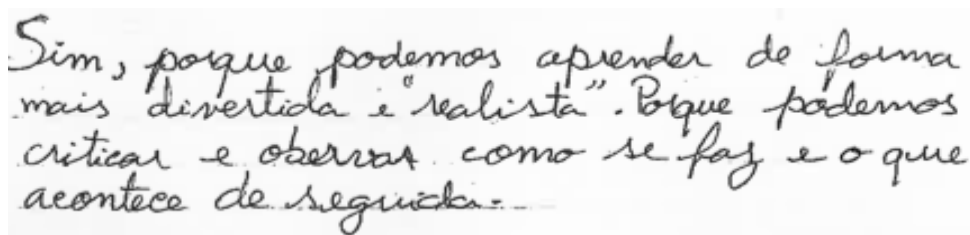 Sim, porque podemos aprender de forma
mais divertida e "realista". Porque podemos
criticar e obervar como se faz e o que
acontece de seguida.